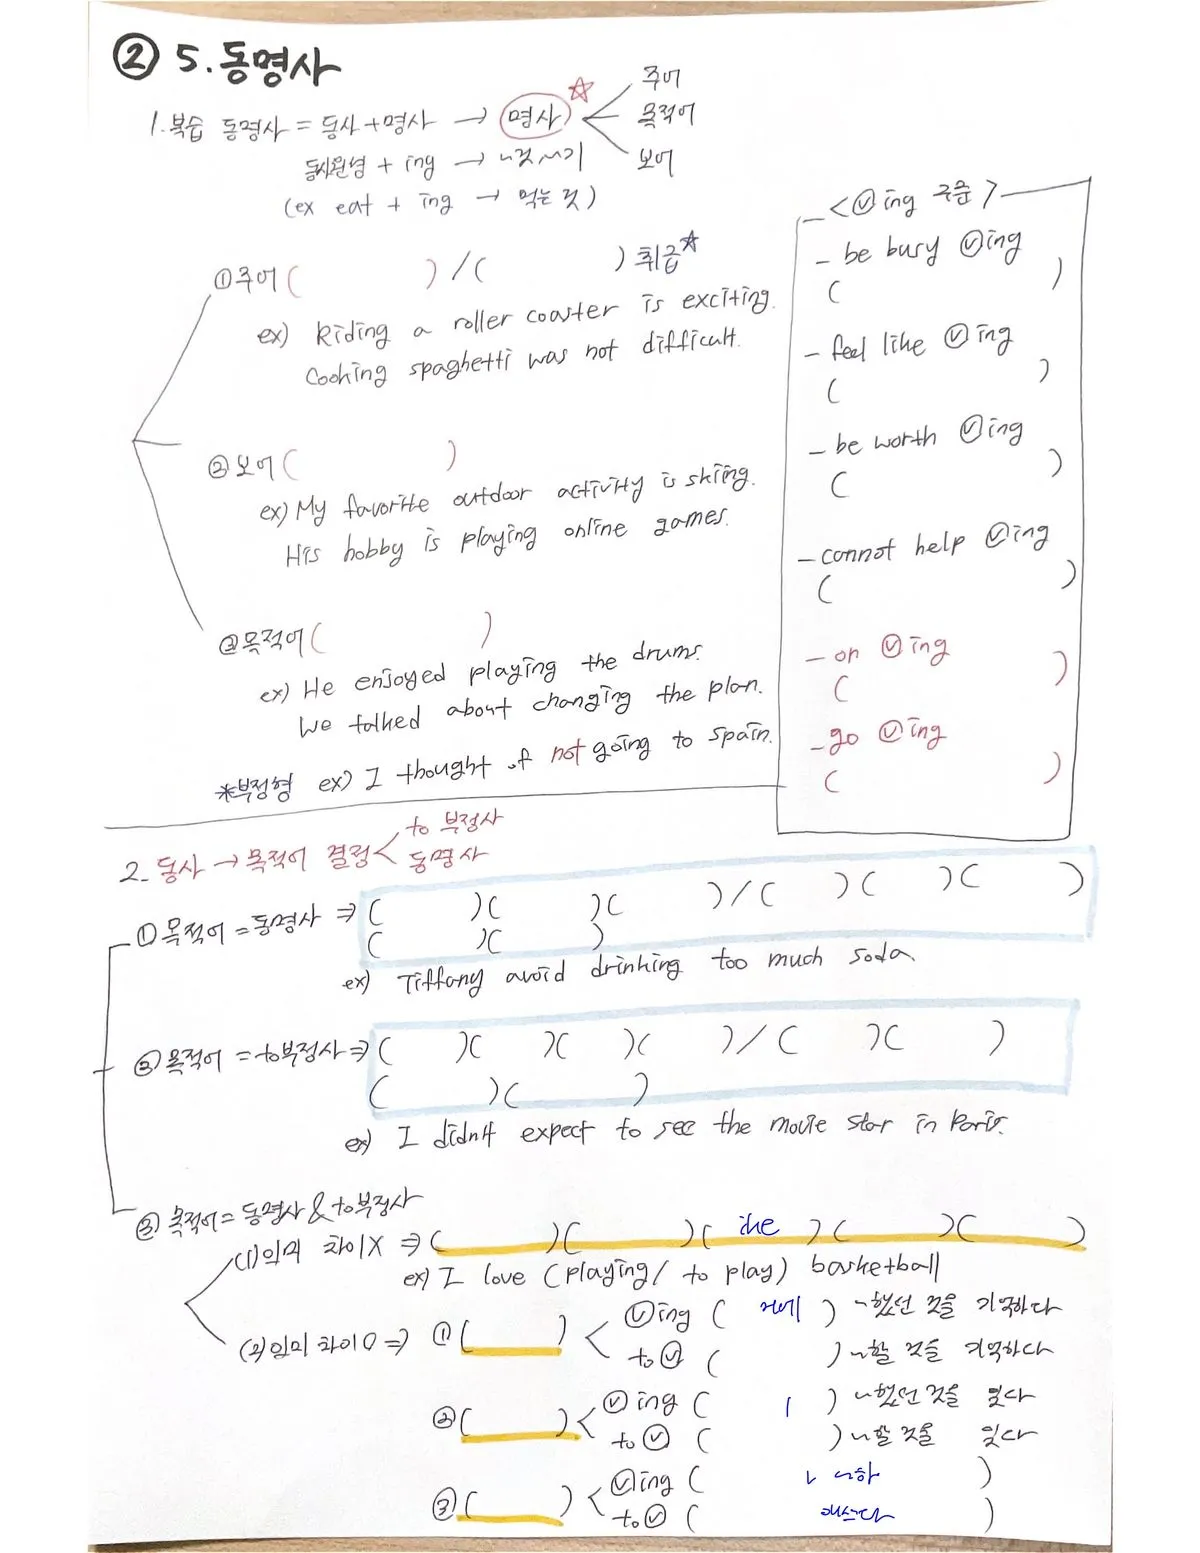 ② 5. 동명사
1. 복습 동명사 = 동사 + 명사 → 명사 ☆ < 주어
목적어
보어
동사원형 + ing → ~것, ~기
(ex eat + ing → 먹는 것)
① 주어 ( ) / ( ) 취급☆
ex) Riding a roller coaster is exciting.
Cooking spaghetti was not difficult.
② 보어 ( )
ex) My favorite outdoor activity is skiing.
His hobby is playing online games.
③ 목적어 ( )
ex) He enjoyed playing the drums.
We talked about changing the plan.
*부정형 ex) I thought of not going to Spain.
<ⓥing 구문>
- be busy ⓥing
( )
- feel like ⓥing
( )
- be worth ⓥing
( )
- connot help ⓥing
( )
- on ⓥing
( )
- go ⓥing
( )
2. 동사 → 목적어 결정 < to 부정사
동명사
① 목적어 = 동명사 ⇒ ( )( )( ) / ( )( )( )
( )( )
ex) Tiffany avoid drinking too much soda
② 목적어 = to부정사 ⇒ ( )( )( )( ) / ( )( )
( )( )
ex) I didn't expect to see the movie star in Paris.
③ 목적어 = 동명사 & to부정사
(1) 의미 차이 X ⇒ ( )( )( )( )( )
ex) I love (playing / to play) basketball
(2) 의미 차이 O ⇒ ① ( ) < ⓥing ( ) ~했던 것을 기억하다
to ⓥ ( ) ~할 것을 기억하다
② ( ) < ⓥing ( ) ~했던 것을 잊다
to ⓥ ( ) ~할 것을 잊다
③ ( ) < ⓥing ( )
to ⓥ ( )